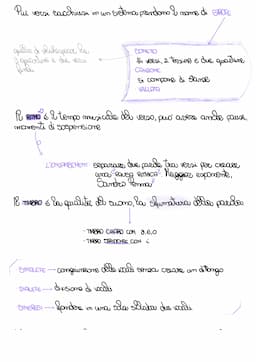 Più versi racchiusi in un sistema prendono il nome di STROFE
quello di Shakespeare ha
3 quartine e due versi
finali
SONETTO
14 versi, 2 terzine e due quartine
CANZONE
si compone di stanze
BALLATA
Il RITMO è il tempo musicale del verso, può avere anche pause,
momenti di sospensione
L'ENJAMBEMENT: separare due parole tra versi per creare
una "pausa ritmica". Maggiore esponente,
Sandro Penna
Il TIMBRO è la qualità del suono, la sfumatura delle parole
- TIMBRO CHIARO CON a, e, o
- TIMBRO con i
SINALEFE → congiunzione delle vocali senza creare un dittongo
DIALEFE → divisione di vocali
SINERESI → fondere in una sola sillaba due vocali